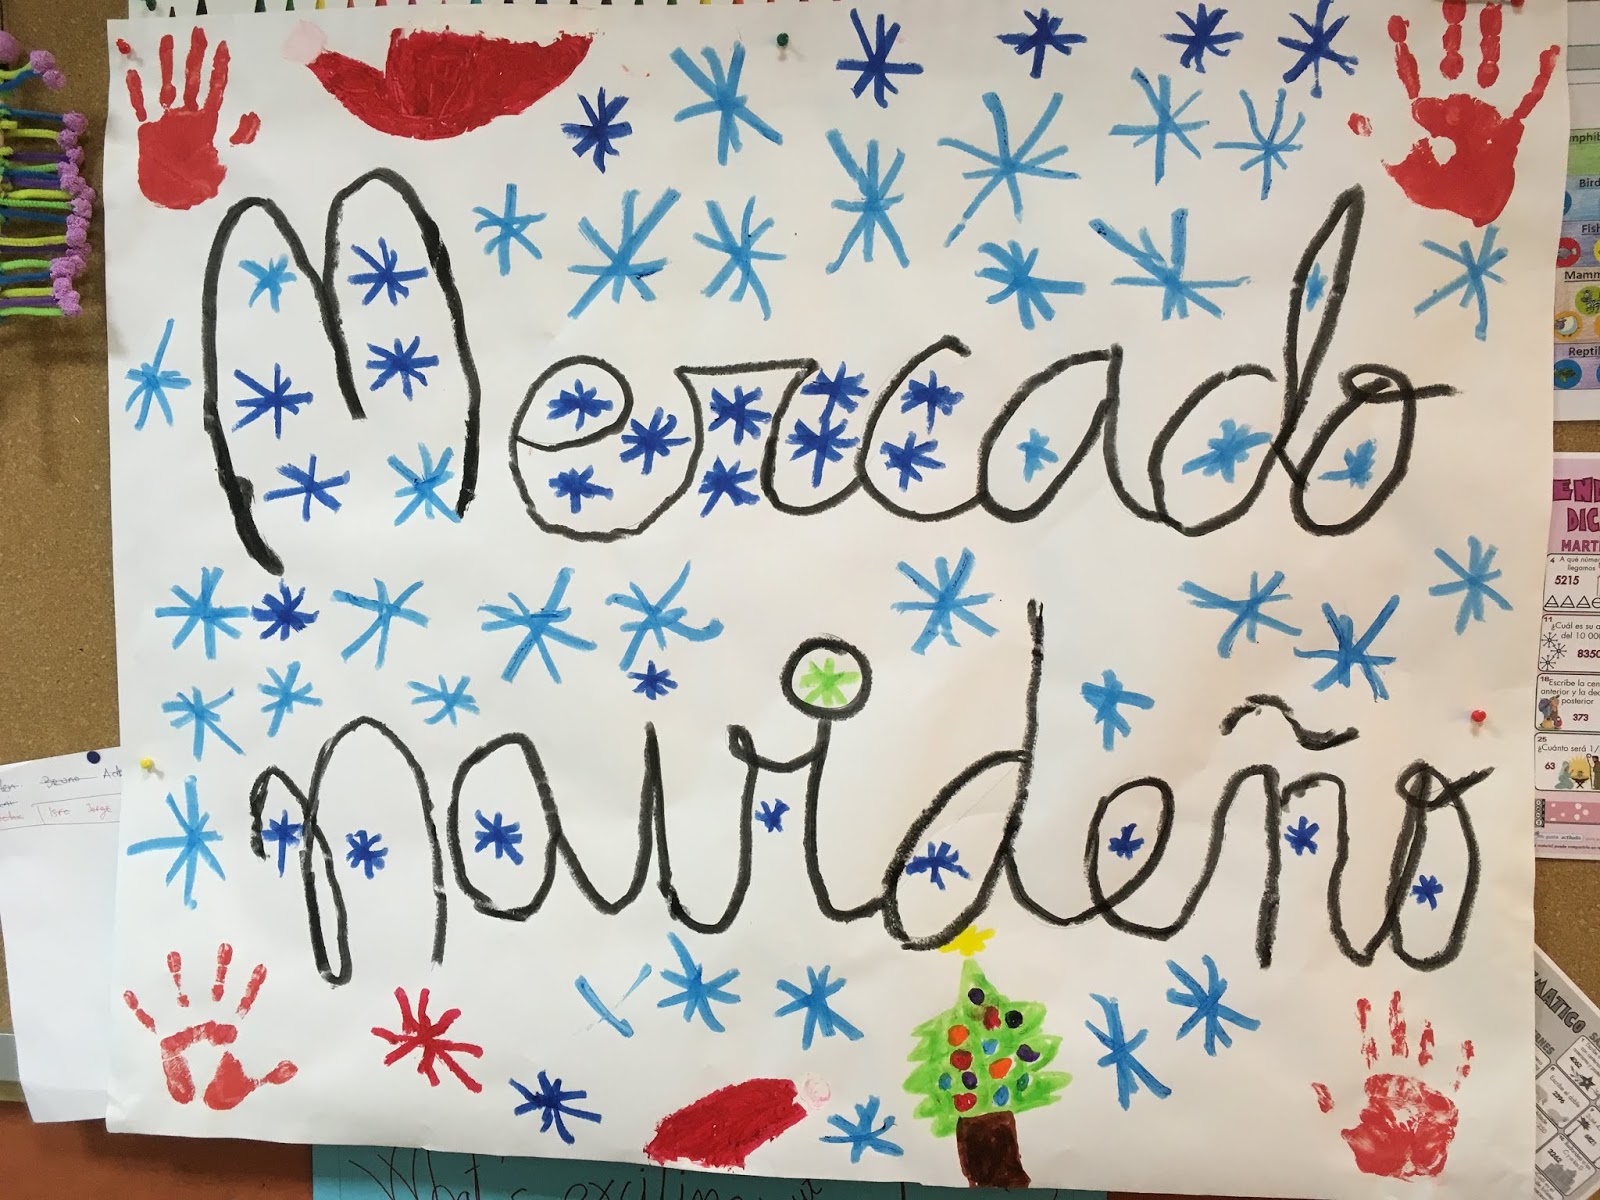 Mercado
navideño
What's exciting
Bird
Fish
Mamm
Reptil
DIC
MARTI
4 A qué núme
llegamos
5215
11
¿Cuál es su a
del 10 00
8350
18 Escribe la cen
anterior y la dec
posterior
373
25
¿Cuánto será 1/
63
Bruno
Jorge